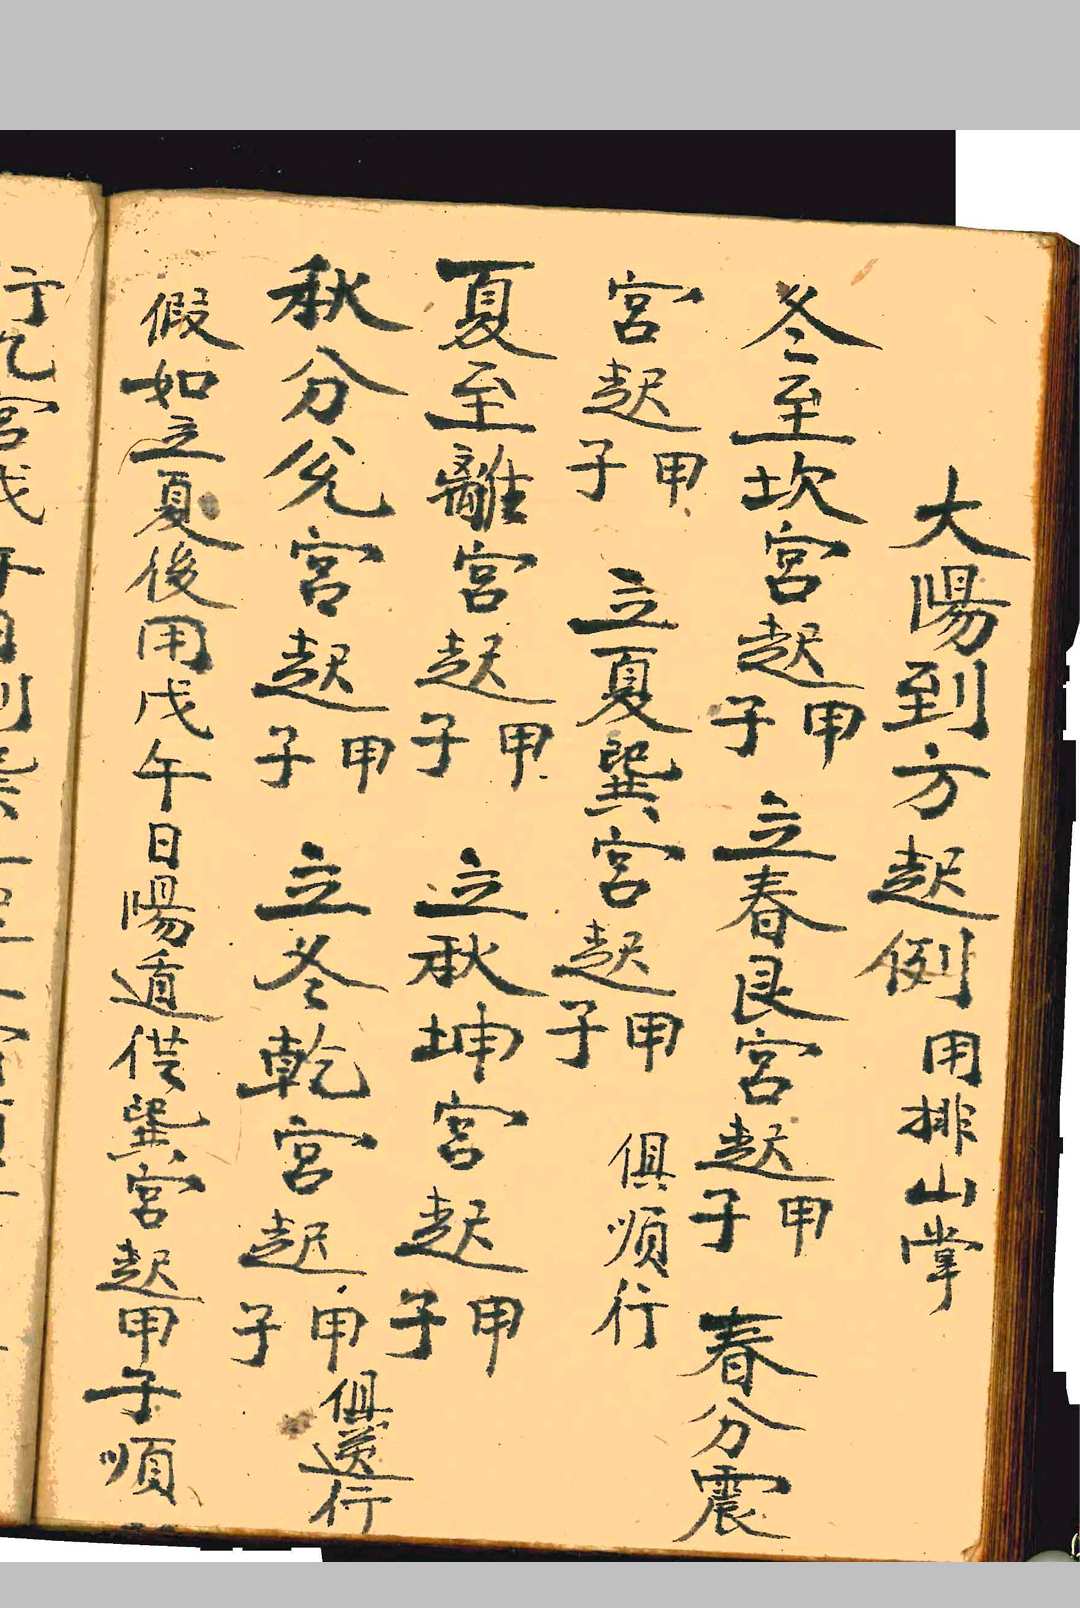 大陽到方起例 用排山掌
冬至坎宮起甲子 立春艮宮起甲子 春分震
宮起甲子 立夏巽宮起甲子 俱順行
夏至離宮起甲子 立秋坤宮起甲子
秋分兌宮起甲子 立冬乾宮起甲子 俱逆行
假如立夏後用戊午日陽遁從巽宮起甲子順